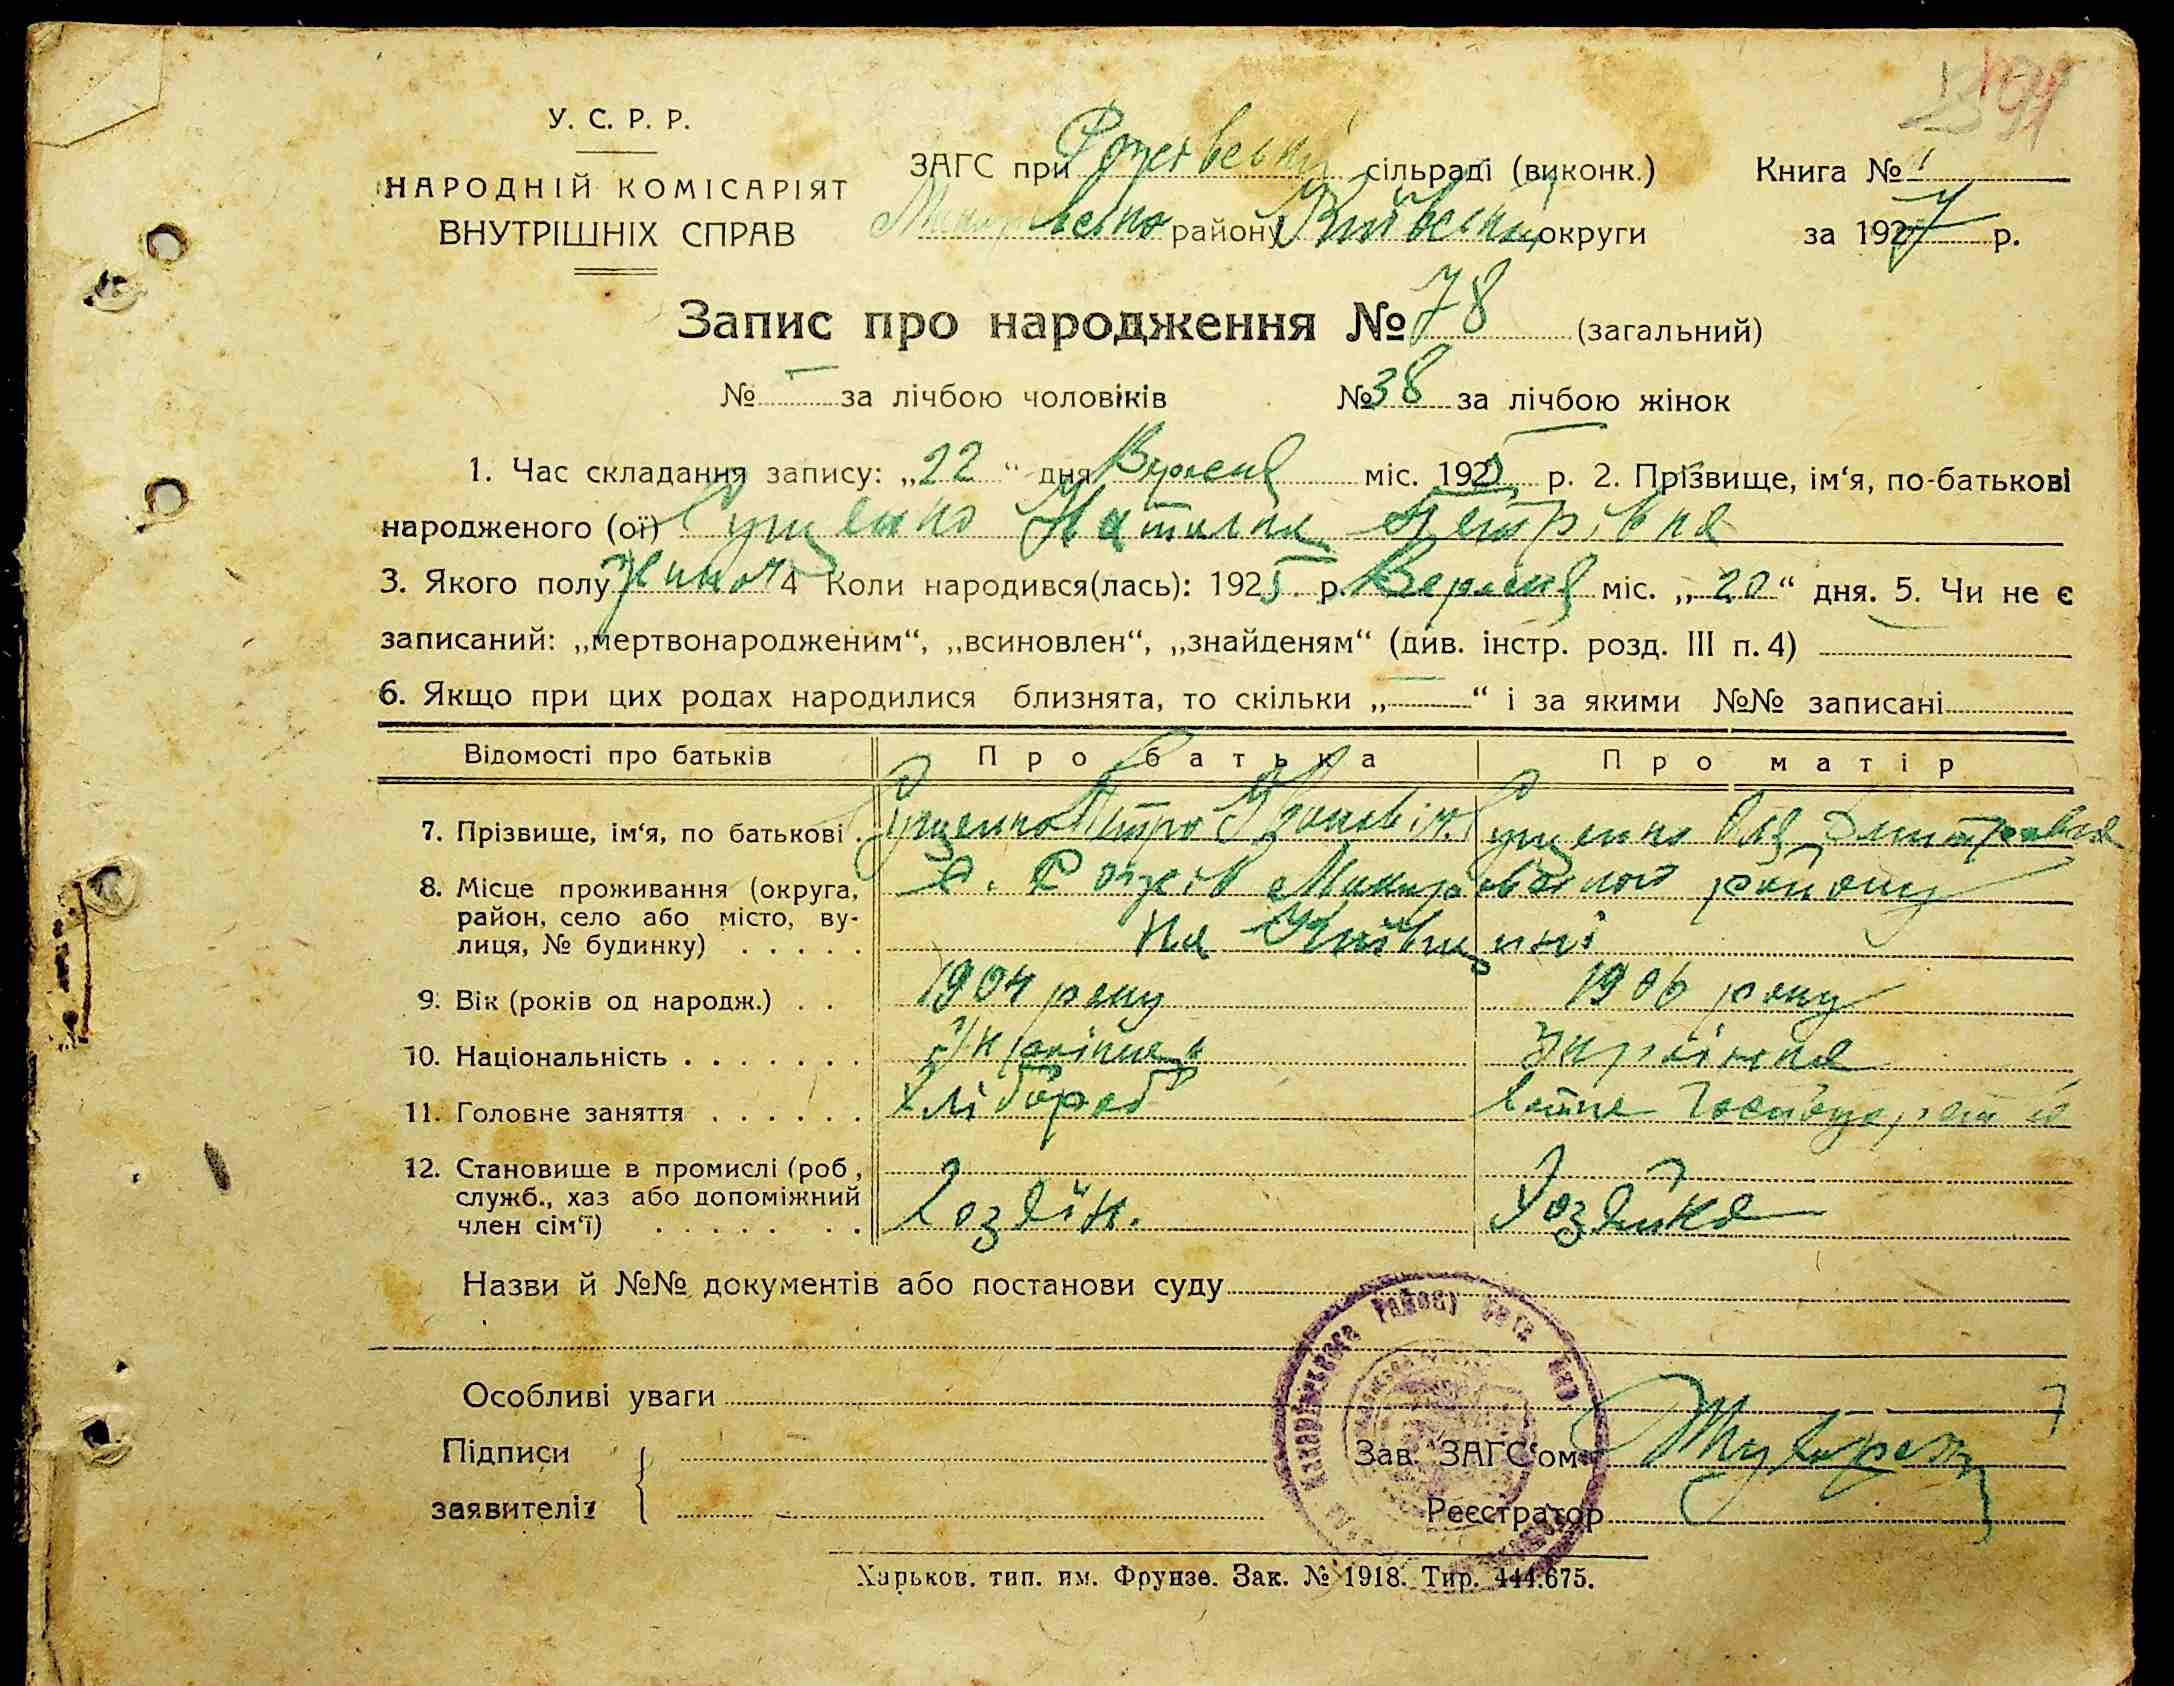 У. С. Р. Р.
НАРОДНІЙ КОМІСАРІЯТ
ВНУТРІШНІХ СПРАВ
ЗАГС при сільраді (виконк.)
району Київської округи
Книга № 1
за 1927 р.
Запис про народження № 78 (загальний)
№ — за лічбою чоловіків № 38 за лічбою жінок
1. Час складання запису: „22“ дня Вересня міс. 1925 р. 2. Прізвище, ім‘я, по-батькові
народженого (ої) Сущенко Наталка Петрівна
3. Якого полу 4 Коли народився(лась): 1925 р. Вересня міс. „20“ дня. 5. Чи не є
записаний: „мертвонародженим“, „всиновлен“, „знайденям“ (див. інстр. розд. III п. 4)
6. Якщо при цих родах народилися близнята, то скільки „—“ і за якими №№ записані
Відомості про батьків Про батька Про матір
7. Прізвище, ім‘я, по батькові Сущенко Петро Сущенко
8. Місце проживання (округа,
район, село або місто, ву-
лиця, № будинку)
с. Рожів Макарівського району
на Київщині
9. Вік (років од народж.) 1904 року 1906 року
10. Національність Українець Українка
11. Головне заняття Хлібороб
12. Становище в промислі (роб,
служб., хаз або допоміжний
член сім‘ї)
Хозяїн. Хозяйка
Назви й №№ документів або постанови суду
Особливі уваги
Підписи
заявителів
Зав. ЗАГС‘ом
Реєстратор
Харьков. тип. им. Фрунзе. Зак. № 1918. Тир. 444.675.